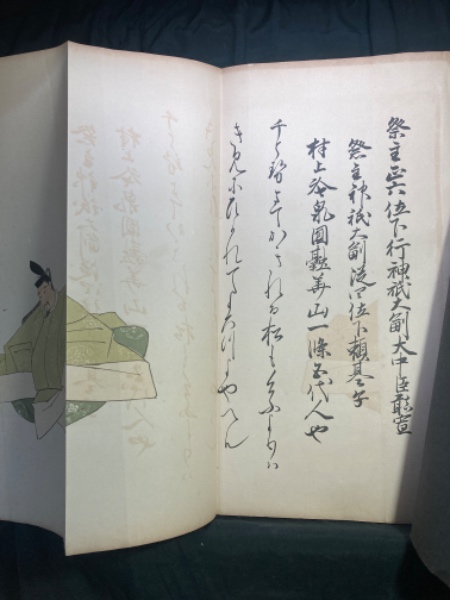 祭主正六位下行神祇大副大中臣能宣
祭主神祇大副従四位下頼基子
村上冷泉圓融華山一條五代人也
千とせまてかきれる松もけふよりは
きみにひかれてよろつよやへん